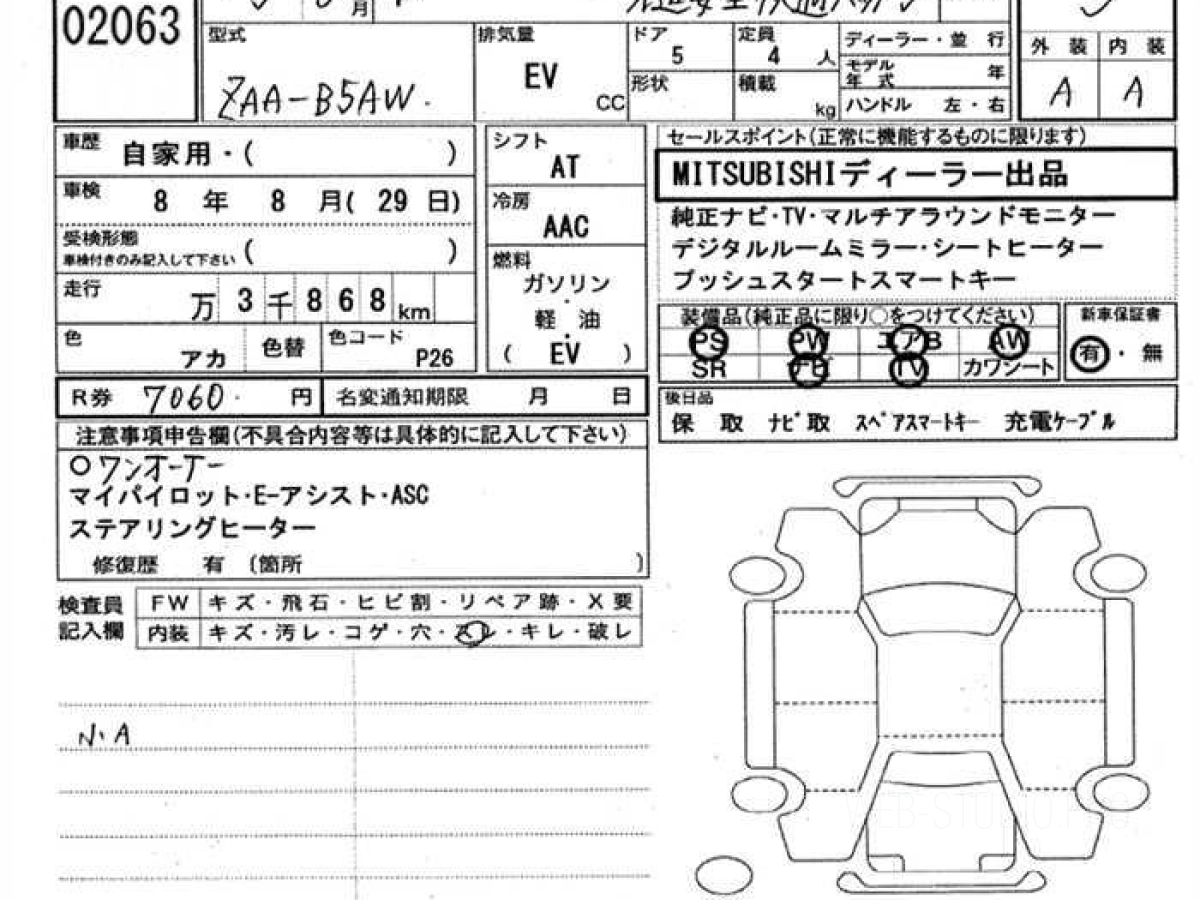 月
02063
型式
ZAA-B5AW
排気量
EV
CC
ドア
5
形状
定員
4 人
積載
kg
ディーラー・並 行
モデル年式 年
ハンドル 左・右
外 装 内 装
A A
車歴 自家用・( )
車検 8 年 8 月( 29 日)
受検形態
車検付きのみ記入して下さい ( )
走行 万 3 千 8 6 8 km
色 アカ 色替 色コード P26
シフト
AT
冷房
AAC
燃料
ガソリン
・
軽 油
・
( EV )
セールスポイント(正常に機能するものに限ります)
MITSUBISHIディーラー出品
純正ナビ・TV・マルチアラウンドモニター
デジタルルームミラー・シートヒーター
プッシュスタートスマートキー
装備品(純正品に限り○をつけてください)
PS PW エアB AW
SR ナビ TV カワシート
新車保証書
有・無
R券 7060 円 名変通知期限 月 日
後日品
保 取 ナビ取 スペアスマートキー 充電ケーブル
注意事項申告欄(不具合内容等は具体的に記入して下さい)
○ワンオーナー
マイパイロット・E-アシスト・ASC
ステアリングヒーター
修復歴 有 〔箇所 〕
検査員
記入欄
FW キズ・飛石・ヒビ割・リペア跡・X要
内装 キズ・汚レ・コゲ・穴・スレ・キレ・破レ
N.A